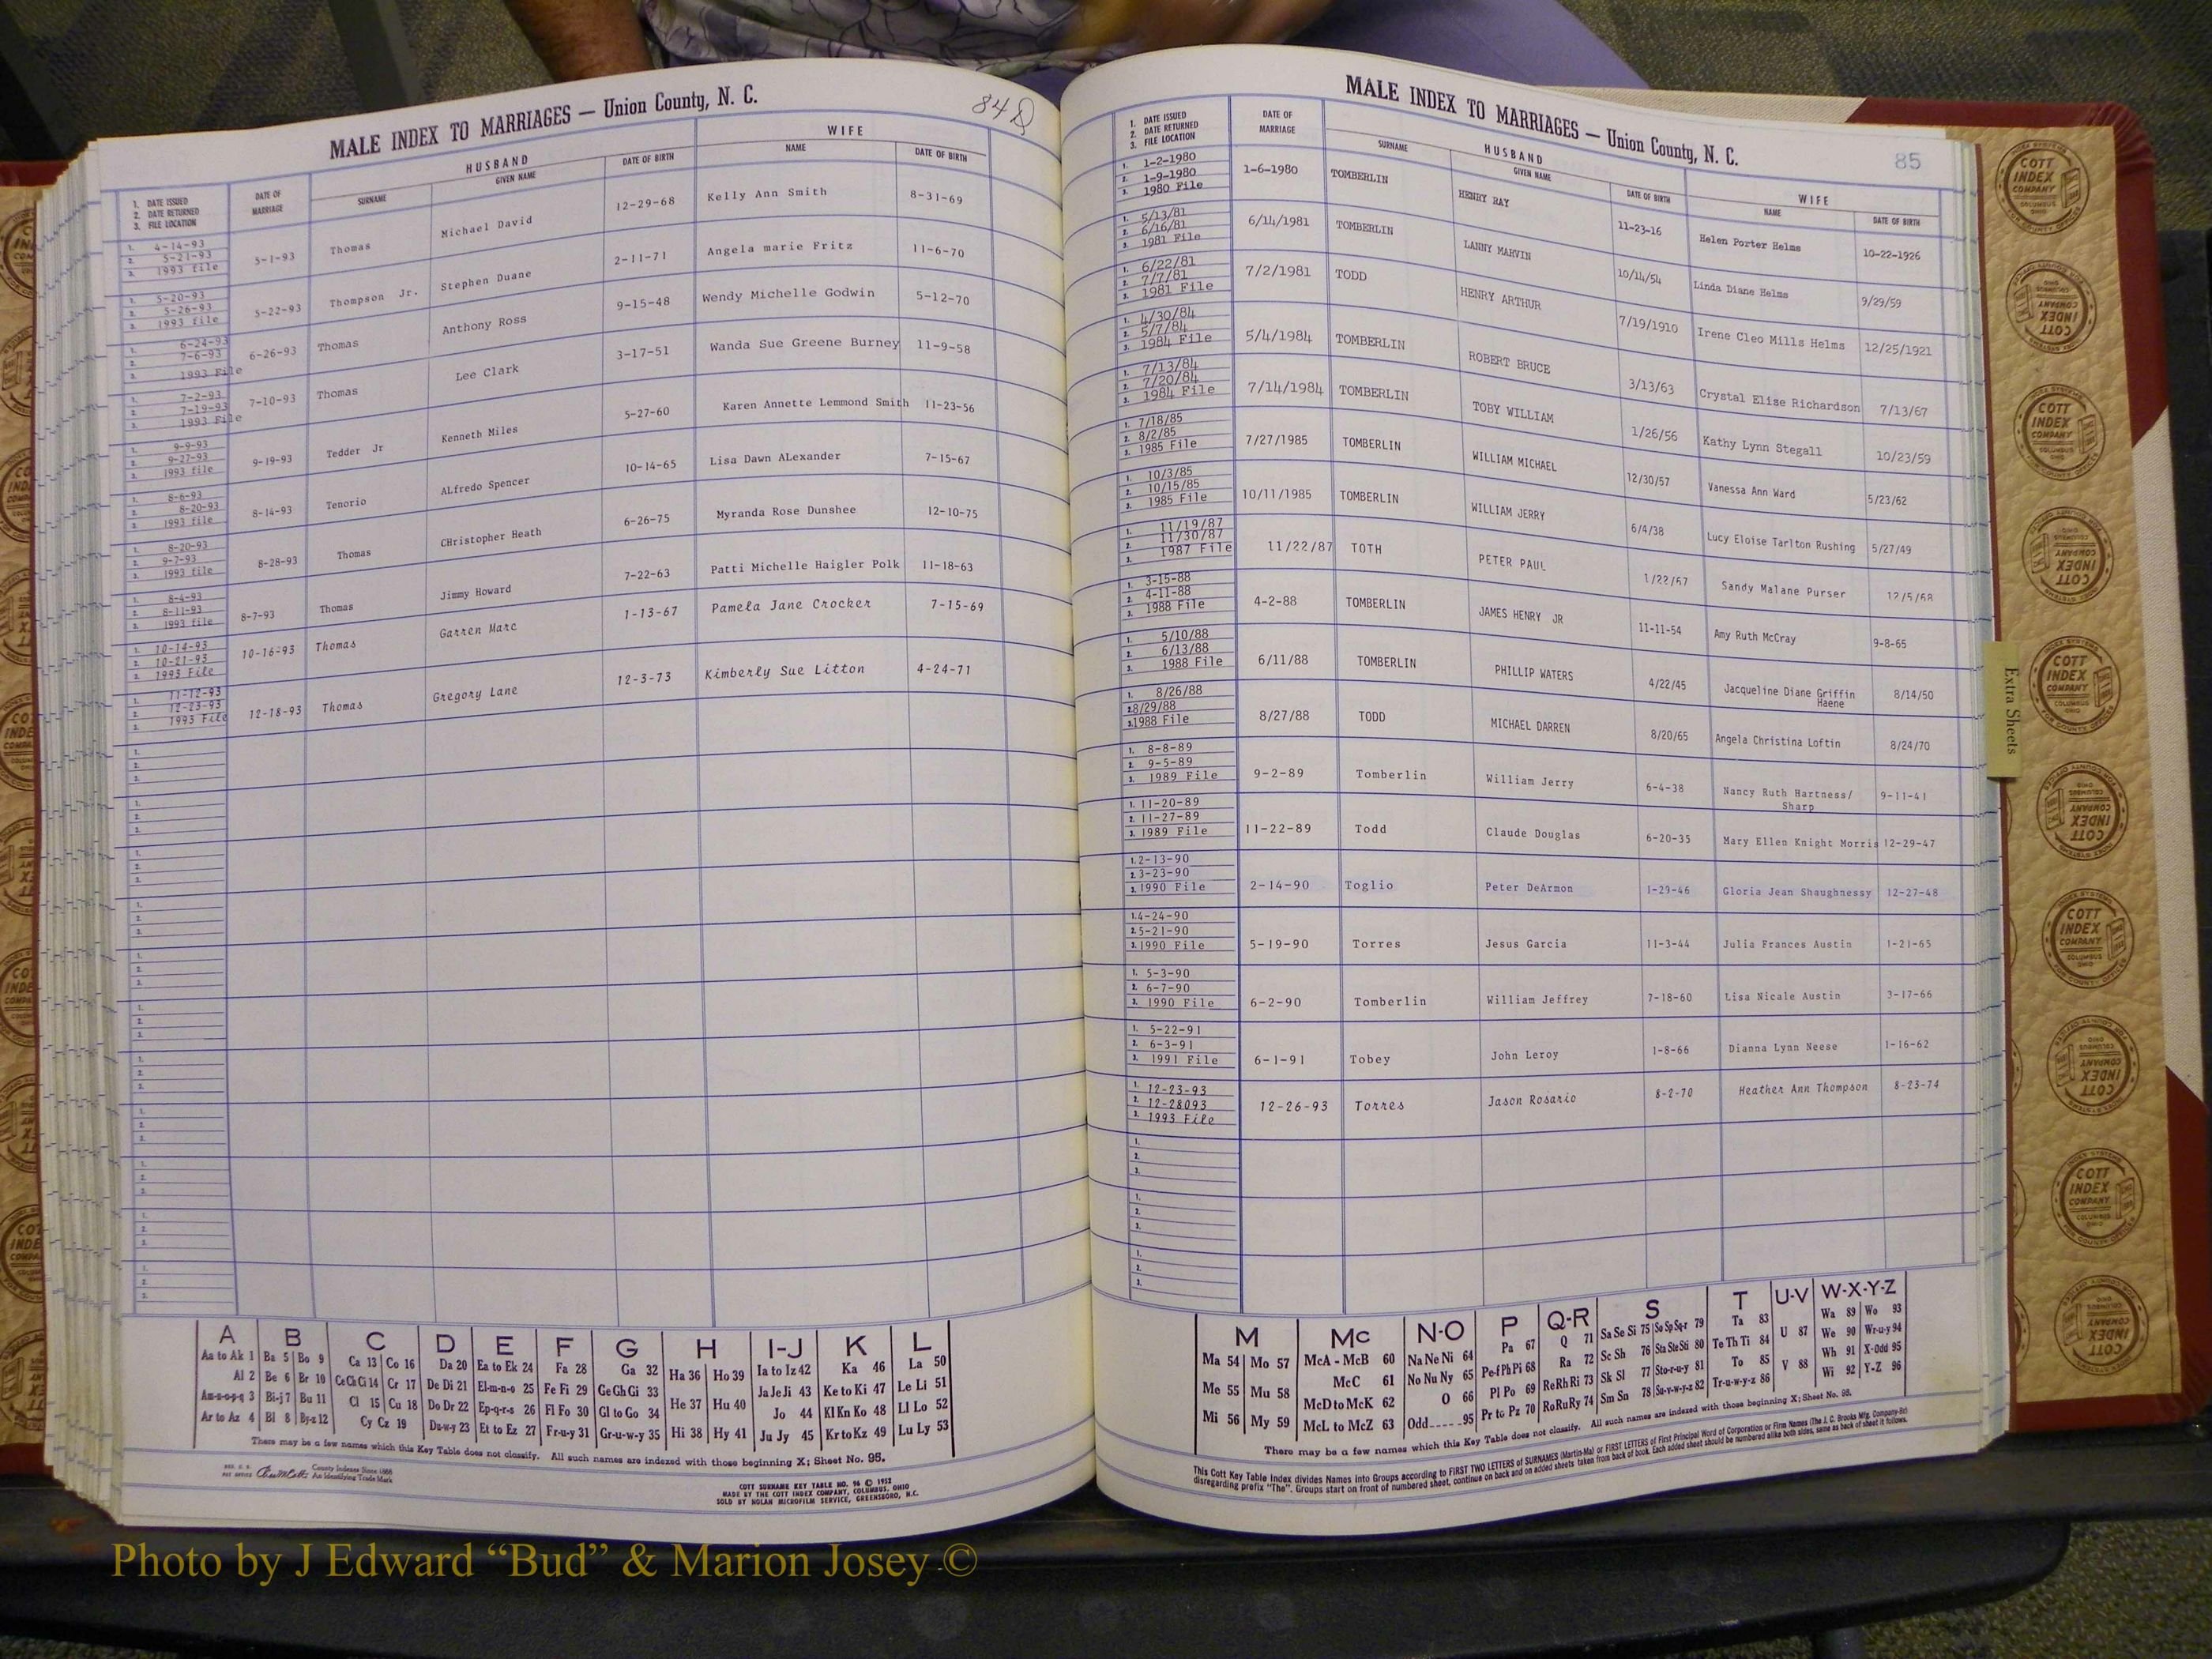 MALE INDEX TO MARRIAGES — Union County, N. C.
84
1. DATE ISSUED
2. DATE RETURNED
3. FILE LOCATION
DATE OF MARRIAGE
HUSBAND
SURNAME GIVEN NAME DATE OF BIRTH
WIFE
NAME DATE OF BIRTH
1. 4-14-93
2. 5-21-93
3. 1993 file
5-1-93 Thomas Michael David 12-29-68 Kelly Ann Smith 8-31-69
1. 5-20-93
2. 5-26-93
3. 1993 file
5-22-93 Thompson Jr. Stephen Duane 2-11-71 Angela marie Fritz 11-6-70
1. 6-24-93
2. 7-6-93
3. 1993 File
6-26-93 Thomas Anthony Ross 9-15-48 Wendy Michelle Godwin 5-12-70
1. 7-2-93
2. 7-19-93
3. 1993 File
7-10-93 Thomas Lee Clark 3-17-51 Wanda Sue Greene Burney 11-9-58
1. 9-9-93
2. 9-27-93
3. 1993 file
9-19-93 Tedder Jr Kenneth Miles 5-27-60 Karen Annette Lemmond Smith 11-23-56
1. 8-6-93
2. 8-20-93
3. 1993 file
8-14-93 Tenorio ALfredo Spencer 10-14-65 Lisa Dawn ALexander 7-15-67
1. 8-20-93
2. 9-7-93
3. 1993 file
8-28-93 Thomas CHristopher Heath 6-26-75 Myranda Rose Dunshee 12-10-75
1. 8-4-93
2. 8-11-93
3. 1993 file
8-7-93 Thomas Jimmy Howard 7-22-63 Patti Michelle Haigler Polk 11-18-63
1. 10-14-93
2. 10-21-93
3. 1993 File
10-16-93 Thomas Garren Marc 1-13-67 Pamela Jane Crocker 7-15-69
1. 11-12-93
2. 12-23-93
3. 1993 File
12-18-93 Thomas Gregory Lane 12-3-73 Kimberly Sue Litton 4-24-71
A B C D E F G H I-J K L
Aa to Ak 1 Ba 5 Bo 9 Ca 13 Co 16 Da 20 Ea to Ek 24 Fa 28 Ga 32 Ha 36 Ho 39 Ia to Iz 42 Ka 46 La 50
Al 2 Be 6 Br 10 Ce Ch Ci 14 Cr 17 De Di 21 El-m-n-o 25 Fe Fi 29 Ge Gh Gi 33 He 37 Hu 40 Ja Je Ji 43 Ke to Ki 47 Le Li 51
Am-n-o-p-q 3 Bi-j 7 Bu 11 Cl 15 Cu 18 Do Dr 22 Ep-q-r-s 26 Fl Fo 30 Gl to Go 34 Jo 44 Kl Kn Ko 48 Ll Lo 52
Ar to Az 4 Bl 8 By-z 12 Cy Cz 19 Du-w-y 23 Et to Ez 27 Fr-u-y 31 Gr-u-w-y 35 Hi 38 Hy 41 Ju Jy 45 Kr to Kz 49 Lu Ly 53
There may be a few names which this Key Table does not classify. All such names are indexed with those beginning X; Sheet No. 95.
County Indexes Since 1888
An Identifying Trade Mark
COTT SURNAME KEY TABLE NO. 96 © 1952
MADE BY THE COTT INDEX COMPANY, COLUMBUS, OHIO
SOLD BY NOLAN MICROFILM SERVICE, GREENSBORO, N.C.
MALE INDEX TO MARRIAGES — Union County, N. C.
85
1. DATE ISSUED
2. DATE RETURNED
3. FILE LOCATION
DATE OF MARRIAGE
HUSBAND
SURNAME GIVEN NAME DATE OF BIRTH
WIFE
NAME DATE OF BIRTH
1. 1-2-1980
2. 1-9-1980
3. 1980 File
1-6-1980 TOMBERLIN HENRY RAY 11-23-16 Helen Porter Helms 10-22-1926
1. 5/13/81
2. 6/16/81
3. 1981 File
6/14/1981 TOMBERLIN LANNY MARVIN 10/14/54 Linda Diane Helms 9/29/59
1. 6/22/81
2. 7/7/81
3. 1981 File
7/2/1981 TODD HENRY ARTHUR 7/19/1910 Irene Cleo Mills Helms 12/25/1921
1. 4/30/84
2. 5/7/84
3. 1984 File
5/4/1984 TOMBERLIN ROBERT BRUCE 3/13/63 Crystal Elise Richardson 7/13/67
1. 7/13/84
2. 7/20/84
3. 1984 File
7/14/1984 TOMBERLIN TOBY WILLIAM 1/26/56 Kathy Lynn Stegall 10/23/59
1. 7/18/85
2. 8/2/85
3. 1985 File
7/27/1985 TOMBERLIN WILLIAM MICHAEL 12/30/57 Vanessa Ann Ward 5/23/62
1. 10/3/85
2. 10/15/85
3. 1985 File
10/11/1985 TOMBERLIN WILLIAM JERRY 6/4/38 Lucy Eloise Tarlton Rushing 5/27/49
1. 11/19/87
2. 11/30/87
3. 1987 File
11/22/87 TOTH PETER PAUL 1/22/67 Sandy Malane Purser 12/5/68
1. 3-15-88
2. 4-11-88
3. 1988 File
4-2-88 TOMBERLIN JAMES HENRY JR 11-11-54 Amy Ruth McCray 9-8-65
1. 5/10/88
2. 6/13/88
3. 1988 File
6/11/88 TOMBERLIN PHILLIP WATERS 4/22/45 Jacqueline Diane Griffin Haene 8/14/50
1. 8/26/88
2. 8/29/88
3. 1988 File
8/27/88 TODD MICHAEL DARREN 8/20/65 Angela Christina Loftin 8/24/70
1. 8-8-89
2. 9-5-89
3. 1989 File
9-2-89 Tomberlin William Jerry 6-4-38 Nancy Ruth Hartness/ Sharp 9-11-41
1. 11-20-89
2. 11-27-89
3. 1989 File
11-22-89 Todd Claude Douglas 6-20-35 Mary Ellen Knight Morris 12-29-47
1. 2-13-90
2. 3-23-90
3. 1990 File
2-14-90 Toglio Peter DeArmon 1-29-46 Gloria Jean Shaughnessy 12-27-48
1. 4-24-90
2. 5-21-90
3. 1990 File
5-19-90 Torres Jesus Garcia 11-3-44 Julia Frances Austin 1-21-65
1. 5-3-90
2. 6-7-90
3. 1990 File
6-2-90 Tomberlin William Jeffrey 7-18-60 Lisa Nicale Austin 3-17-66
1. 5-22-91
2. 6-3-91
3. 1991 File
6-1-91 Tobey John Leroy 1-8-66 Dianna Lynn Neese 1-16-62
1. 12-23-93
2. 12-28093
3. 1993 File
12-26-93 Torres Jason Rosario 8-2-70 Heather Ann Thompson 8-23-74
M Mc N-O P Q-R S T U-V W-X-Y-Z
Ma 54 Mo 57 McA - McB 60 Na Ne Ni 64 Pa 67 Q 71 Sa Se Si 75 So Sp Sq-r 79 Ta 83 U 87 Wa 89 Wo 93
Me 55 Mu 58 McC 61 No Nu Ny 65 Pe-f Ph Pi 68 Ra 72 Sc Sh 76 Sta Ste Sti 80 Te Th Ti 84 We 90 Wr-u-y 94
McD to McK 62 O 66 Pl Po 69 Re Rh Ri 73 Sk Sl 77 Sto-r-u-y 81 To 85 V 88 Wh 91 X-Odd 95
Mi 56 My 59 McL to McZ 63 Odd 95 Pr to Pz 70 Ro Ru Ry 74 Sm Sn 78 Su-v-w-y-z 82 Tr-u-w-y-z 86 Wi 92 Y-Z 96
There may be a few names which this Key Table does not classify. All such names are indexed with those beginning X; Sheet No. 95.
This Cott Key Table Index divides Names into Groups according to FIRST TWO LETTERS of SURNAMES (Martin-Ma) or FIRST LETTERS of First Principal Word of Corporation or Firm Names (The J. C. Brooks Mfg. Company-Br)
disregarding prefix "The". Groups start on front of numbered sheet, continue on back and on added sheets taken from back of book. Each added sheet should be numbered alike both sides, same as back of sheet it follows.
Extra Sheets
COTT INDEX COMPANY COLUMBUS OHIO
Photo by J Edward “Bud” & Marion Josey ©